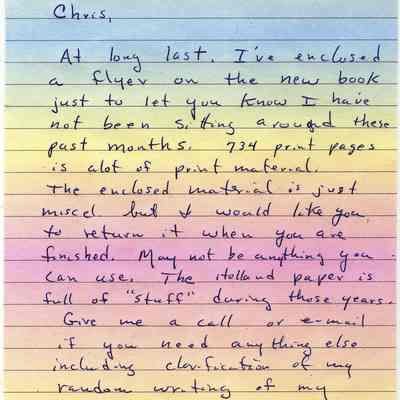 Chris,
At long last. I've enclosed
a flyer on the new book
just to let you know I have
not been sitting around these
past months. 734 print pages
is alot of print material.
The enclosed material is just
miscl. but I would like you
to return it when you are
finished. May not be anything you
can use. The Holland paper is
full of "stuff" during those years.
Give me a call or e-mail
if you need anything else
including clarification of my
random writing of my